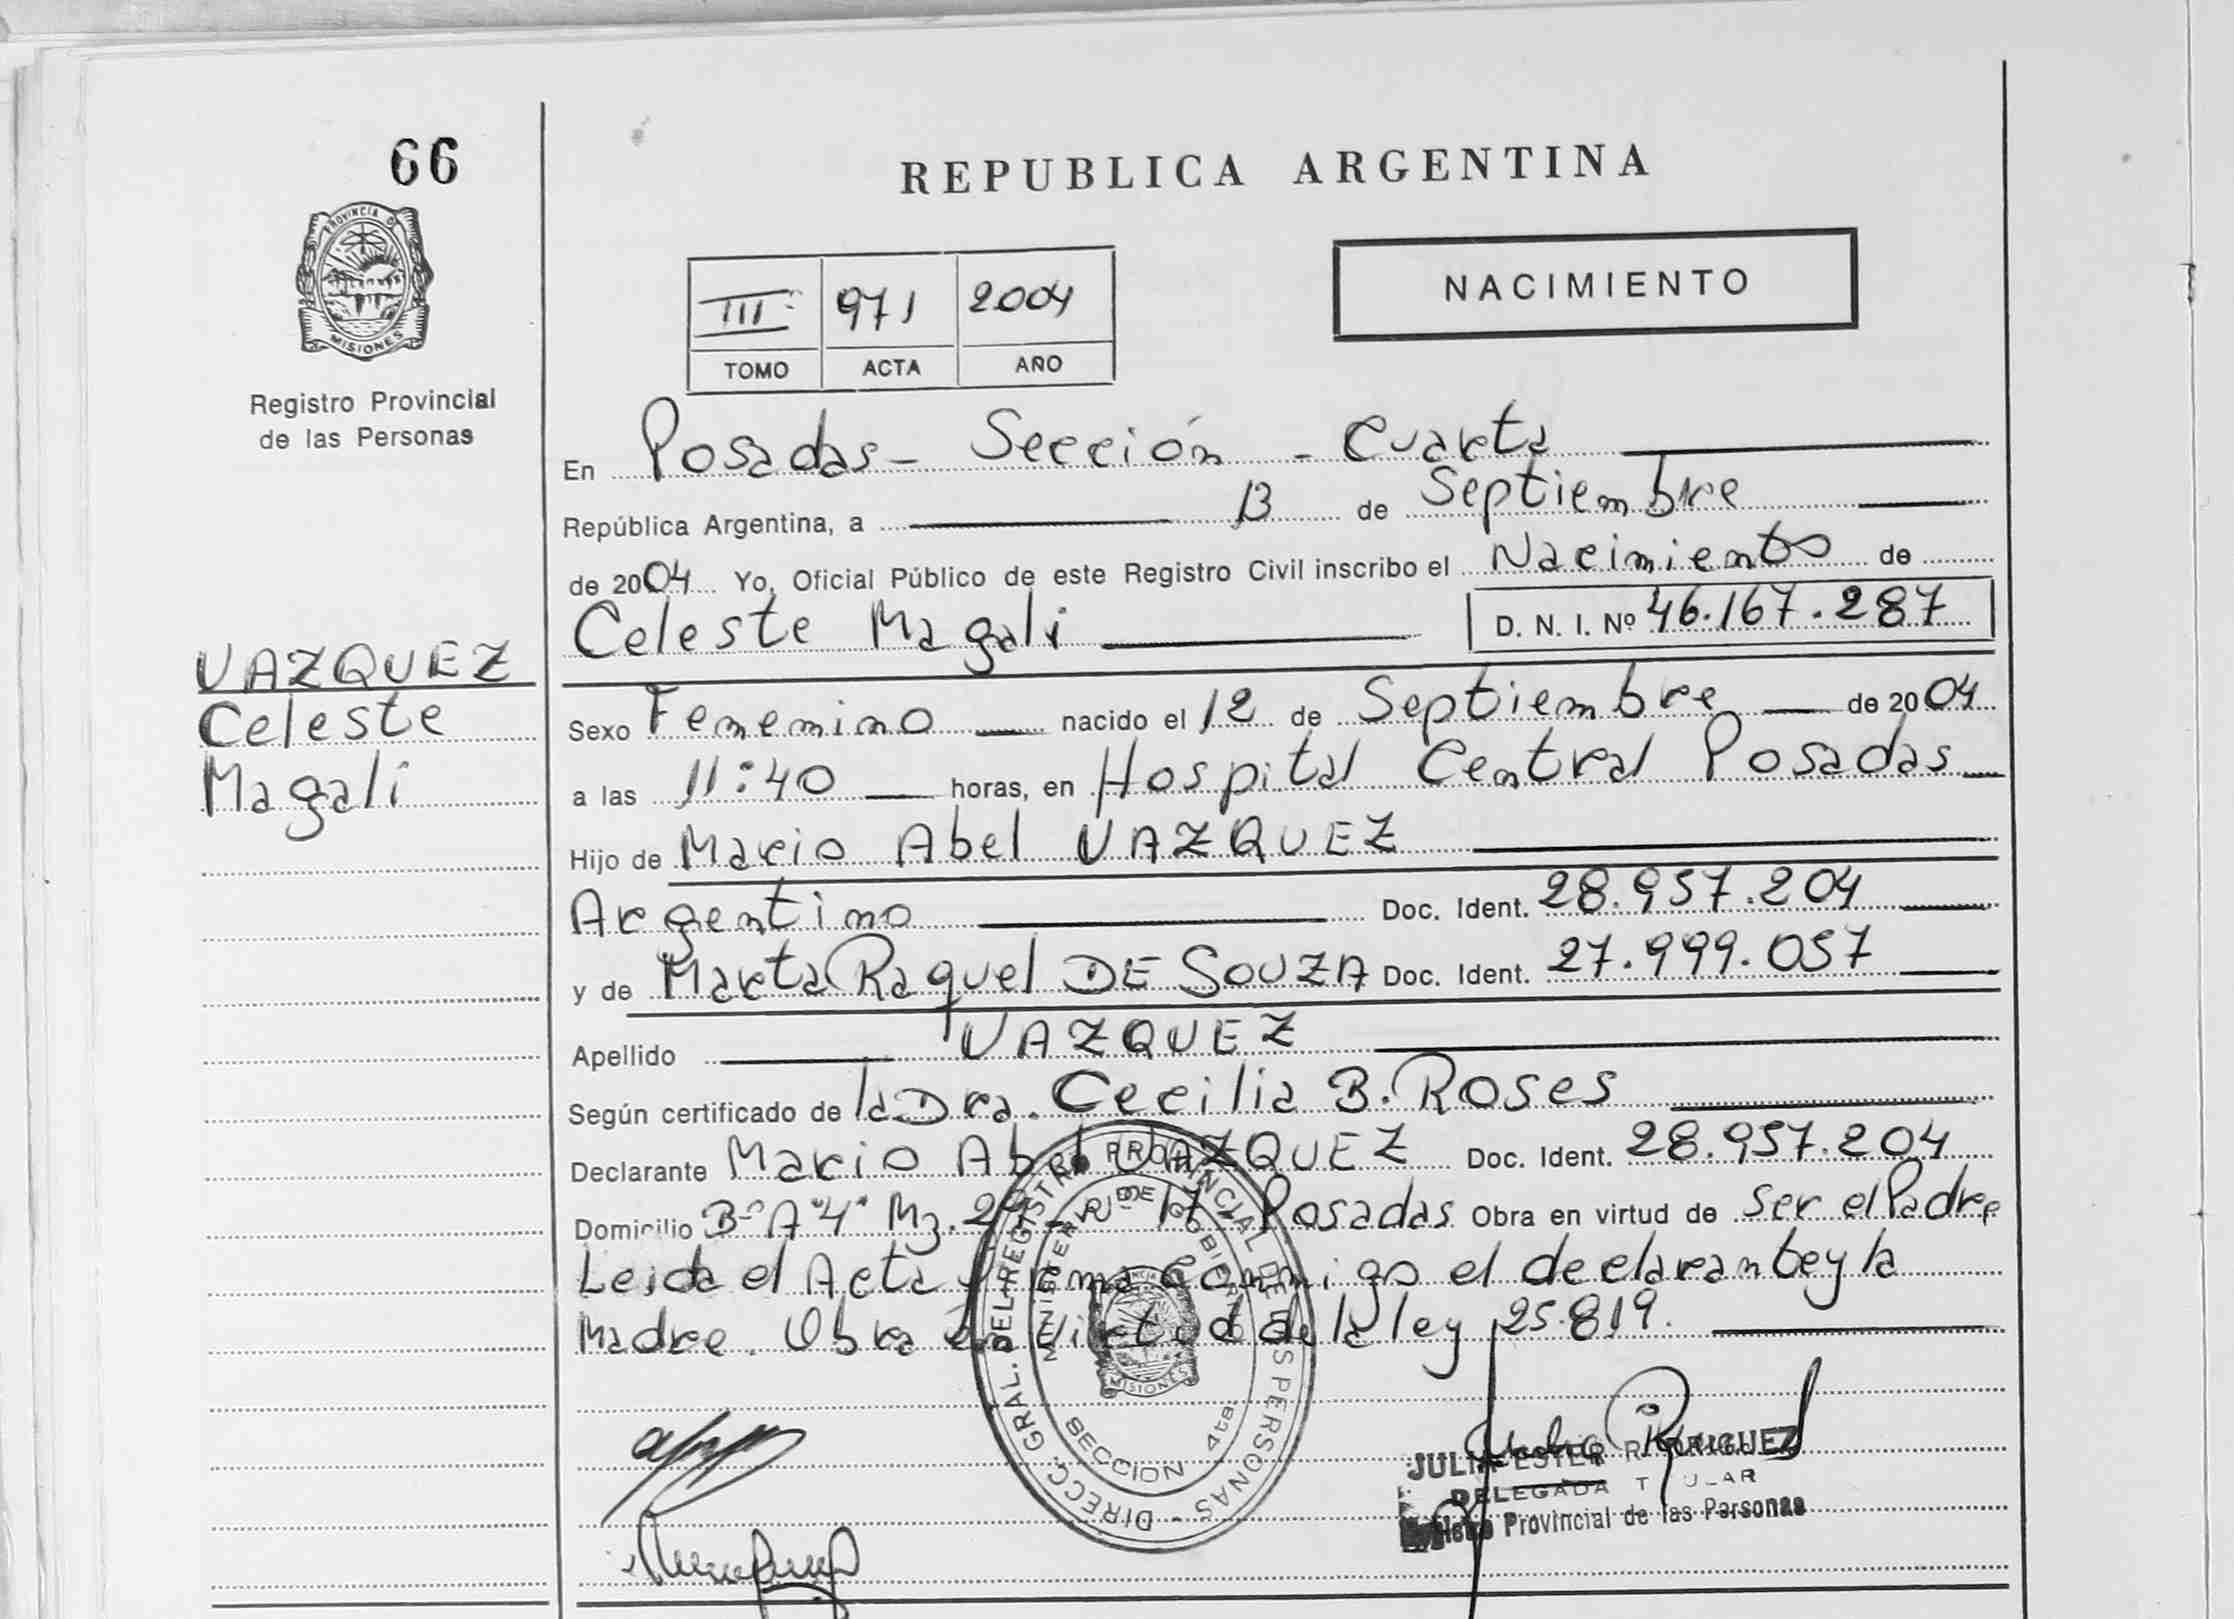 66
REPUBLICA ARGENTINA
PROVINCIA DE
MISIONES
Registro Provincial
de las Personas
III 971 2004
TOMO ACTA AÑO
NACIMIENTO
En Posadas - Sección - Cuarta
República Argentina, a 13 de Septiembre
de 2004 Yo, Oficial Público de este Registro Civil inscribo el Nacimiento de
Celeste Magali D. N. I. Nº 46.167.287
VAZQUEZ
Celeste
Magali
Sexo Femenino nacido el 12 de Septiembre de 2004
a las 11:40 horas, en Hospital Central Posadas
Hijo de Mario Abel VAZQUEZ
Argentino Doc. Ident. 28.957.204
y de Marta Raquel DE SOUZA Doc. Ident. 27.999.057
Apellido VAZQUEZ
Según certificado de la Dra. Cecilia B. Roses
Declarante Mario Abel VAZQUEZ Doc. Ident. 28.957.204
Domicilio Bº A "4" Mz. Nº 17 Posadas Obra en virtud de ser el Padre
Leida el Acta firma conmigo el declarante y la
Madre. Obra en Virtud de la ley 25.819.
DIRECC. GRAL. DEL REGISTRO PROVINCIAL DE LAS PERSONAS
MINISTERIO DE GOBIERNO
MISIONES
SECCION 4ta
JULIA ESTER RODRIGUEZ
DELEGADA TITULAR
Registro Provincial de las Personas